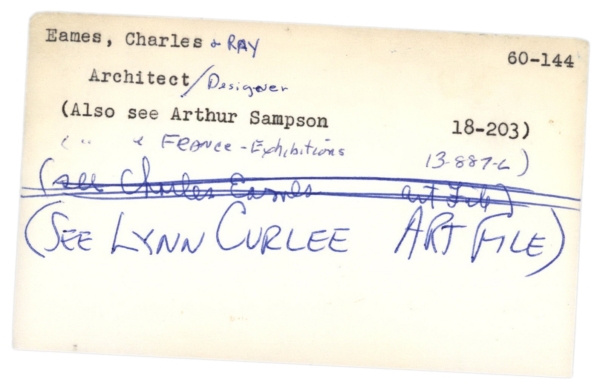 Eames, Charles & RAY 60-144
Architect/Designer
(Also see Arthur Sampson 18-203)
( " " & FRANCE - Exhibitions 13-887-6)
(see Charles Eames art File)
(SEE LYNN CURLEE ART FILE)